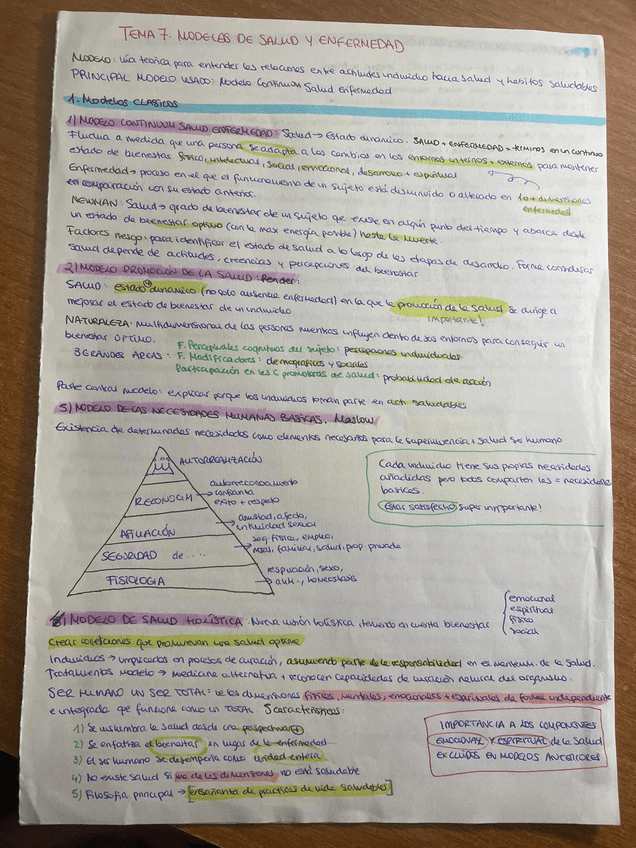 TEMA 7. MODELOS DE SALUD Y ENFERMEDAD
MODELO: vía teórica para entender las relaciones entre actitudes individuo hacia salud y hábitos saludables
PRINCIPAL MODELO USADO: Modelo Continuum Salud Enfermedad
1. MODELOS CLASICOS
1) MODELO CONTINUUM SALUD ENFERMEDAD: Salud → Estado dinámico. SALUD + ENFERMEDAD → términos en un continuo
Fluctua a medida que una persona se adapta a los cambios en los entornos internos + externos para mantener
estado de bienestar físico, intelectual, social, emocional, desarrollo + espiritual
Enfermedad → proceso en el que el funcionamiento de un sujeto está disminuido o alterado en 1 o + dimensiones
en comparación con su estado anterior.
enfermedad
NEWMAN: Salud → grado de bienestar de un sujeto que existe en algún punto del tiempo y abarca desde
un estado de bienestar optimo (con la max energía posible) hasta la muerte.
Factores riesgo: para identificar el estado de salud a lo largo de las etapas de desarrollo. Forma conductas
Salud depende de actitudes, creencias y percepciones del bienestar
2) MODELO PROMOCIÓN DE LA SALUD: Pender:
SALUD: estado dinámico (no solo ausencia enfermedad) en la que la promoción de la salud se dirige a
mejorar el estado de bienestar de un individuo
importante!
NATURALEZA: multidimensional de las personas mientras influyen dentro de sus entornos para conseguir un
bienestar OPTIMO.
F. Perceptuales cognitivos del sujeto: percepciones individuales
3 GRANDES AREAS: F. Modificadores: demográficos y sociales
Participación en las C promotoras de salud: probabilidad de acción
Parte central modelo: explicar porque los individuos toman parte en act. saludables
3) MODELO DE LAS NECESIDADES HUMANAS BASICAS. Maslow
Existencia de determinadas necesidades como elementos necesarios para la supervivencia + salud ser humano
AUTORREALIZACIÓN
autorreconocimiento
RECONOCIM → confianza
exito + respeto
amistad, afecto,
intimidad sexual
AFILIACIÓN
seg. física, empleo,
SEGURIDAD de ....
moral, familiar, salud, prop. privada
FISIOLOGIA
respiración, sexo,
alim., homeostasis
Cada individuo tiene sus propias necesidades
añadidas pero todos comparten las = necesidades
basicas.
Estar satisfecho super importante!
4) MODELO DE SALUD HOLÍSTICA: Nueva visión holística, teniendo en cuenta bienestar
emocional
espiritual
físico
social
Crear condiciones que promuevan una salud optima
Individuos → implicados en procesos de curación, asumiendo parte de la responsabilidad en el mantenim. de la salud.
Tratamientos modelo → medicina alternativa + reconocen capacidades de curación natural del organismo.
SER HUMANO UN SER TOTAL: la las dimensiones físicas, mentales, emocionales + espirituales de forma independiente
e integrada que funcione como un TOTAL 5 características:
1) Se vislumbra la salud desde una perspectiva +
2) Se enfatiza el bienestar en lugar de la enfermedad
3) El ser humano se desempeña como unidad entera
4) No existe salud si una de las dimensiones no está saludable
5) Filosofía principal → enseñanza de practicas de vida saludables
IMPORTANCIA A LOS COMPONENTES
EMOCIONAL Y ESPIRITUAL de la salud
EXCLUIDOS EN MODELOS ANTERIORES